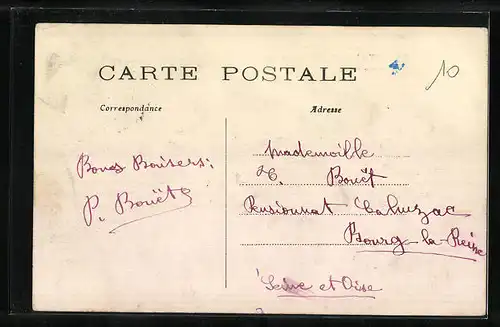 10
CARTE POSTALE
Correspondance
Adresse
Bons Baisers.
P. Bouët
Mademoiselle
Bouët
Pensionnat
Bourg-la-Reine
Seine et Oise